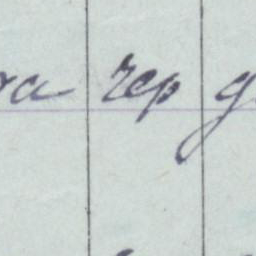 ra rep g